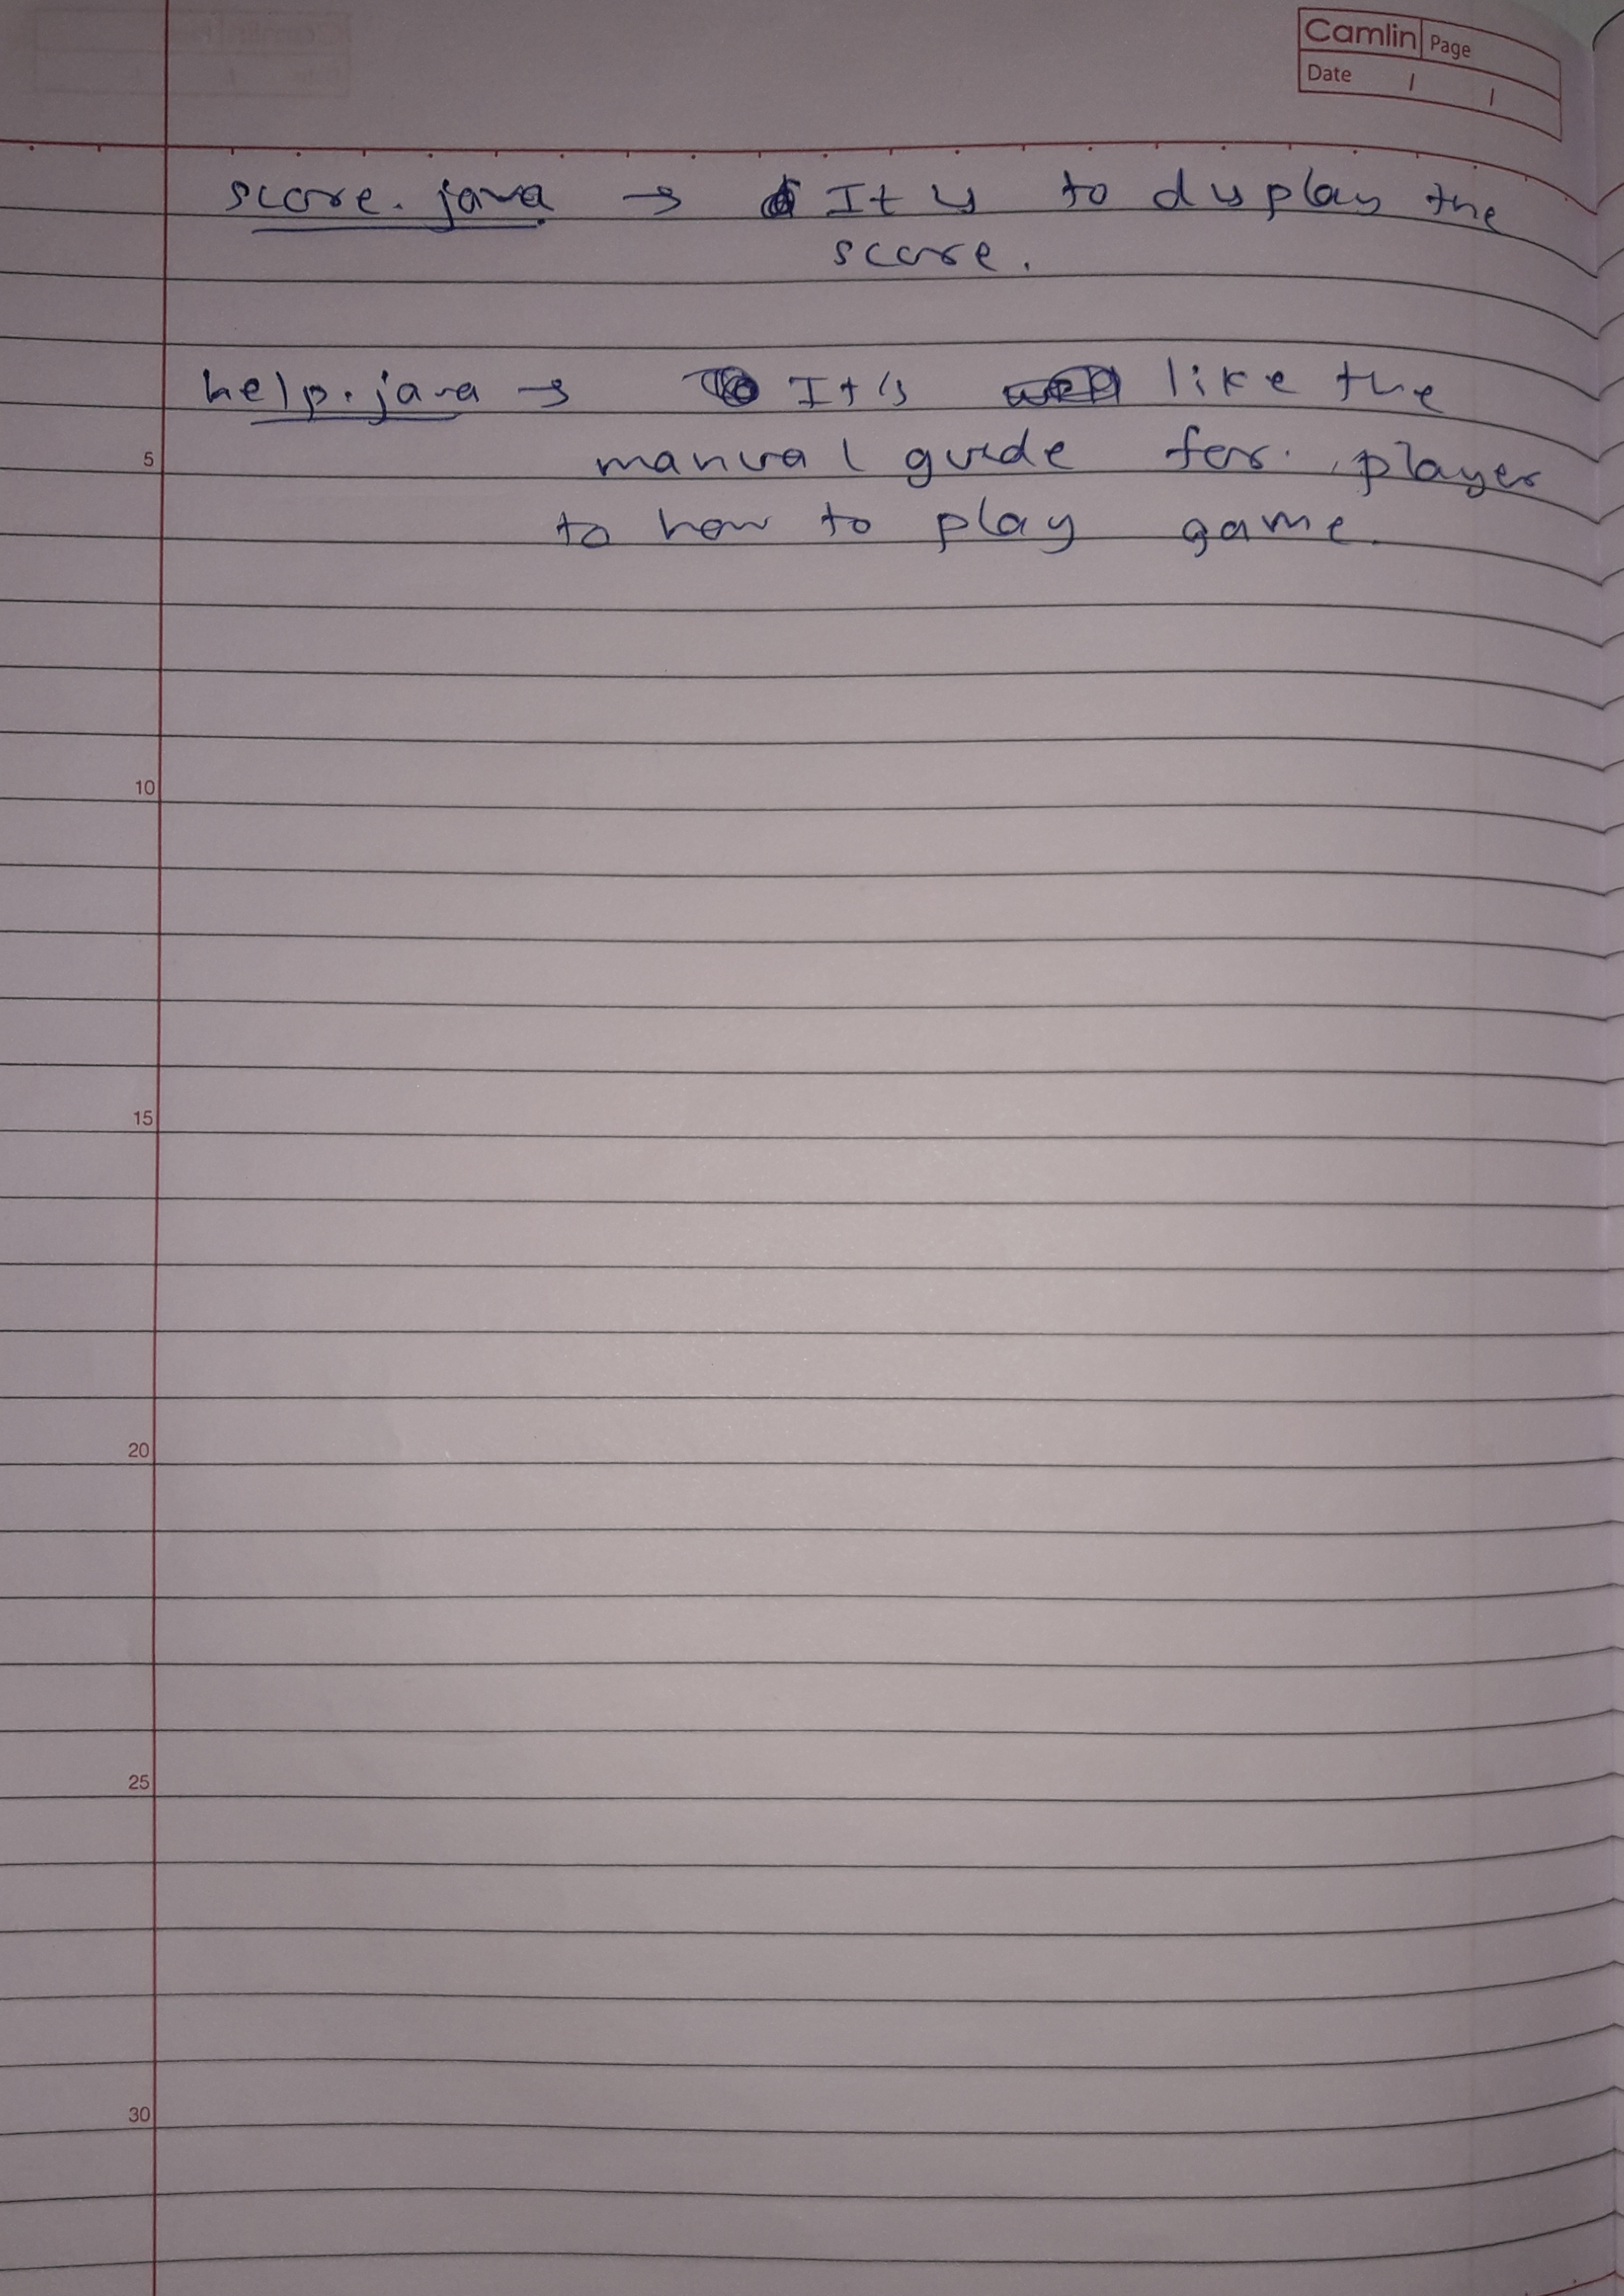 Camlin Page
Date / /
score.java → It is to display the
score.
help.java → It's like the
5
manual guide for player
to how to play game.
10
15
20
25
30